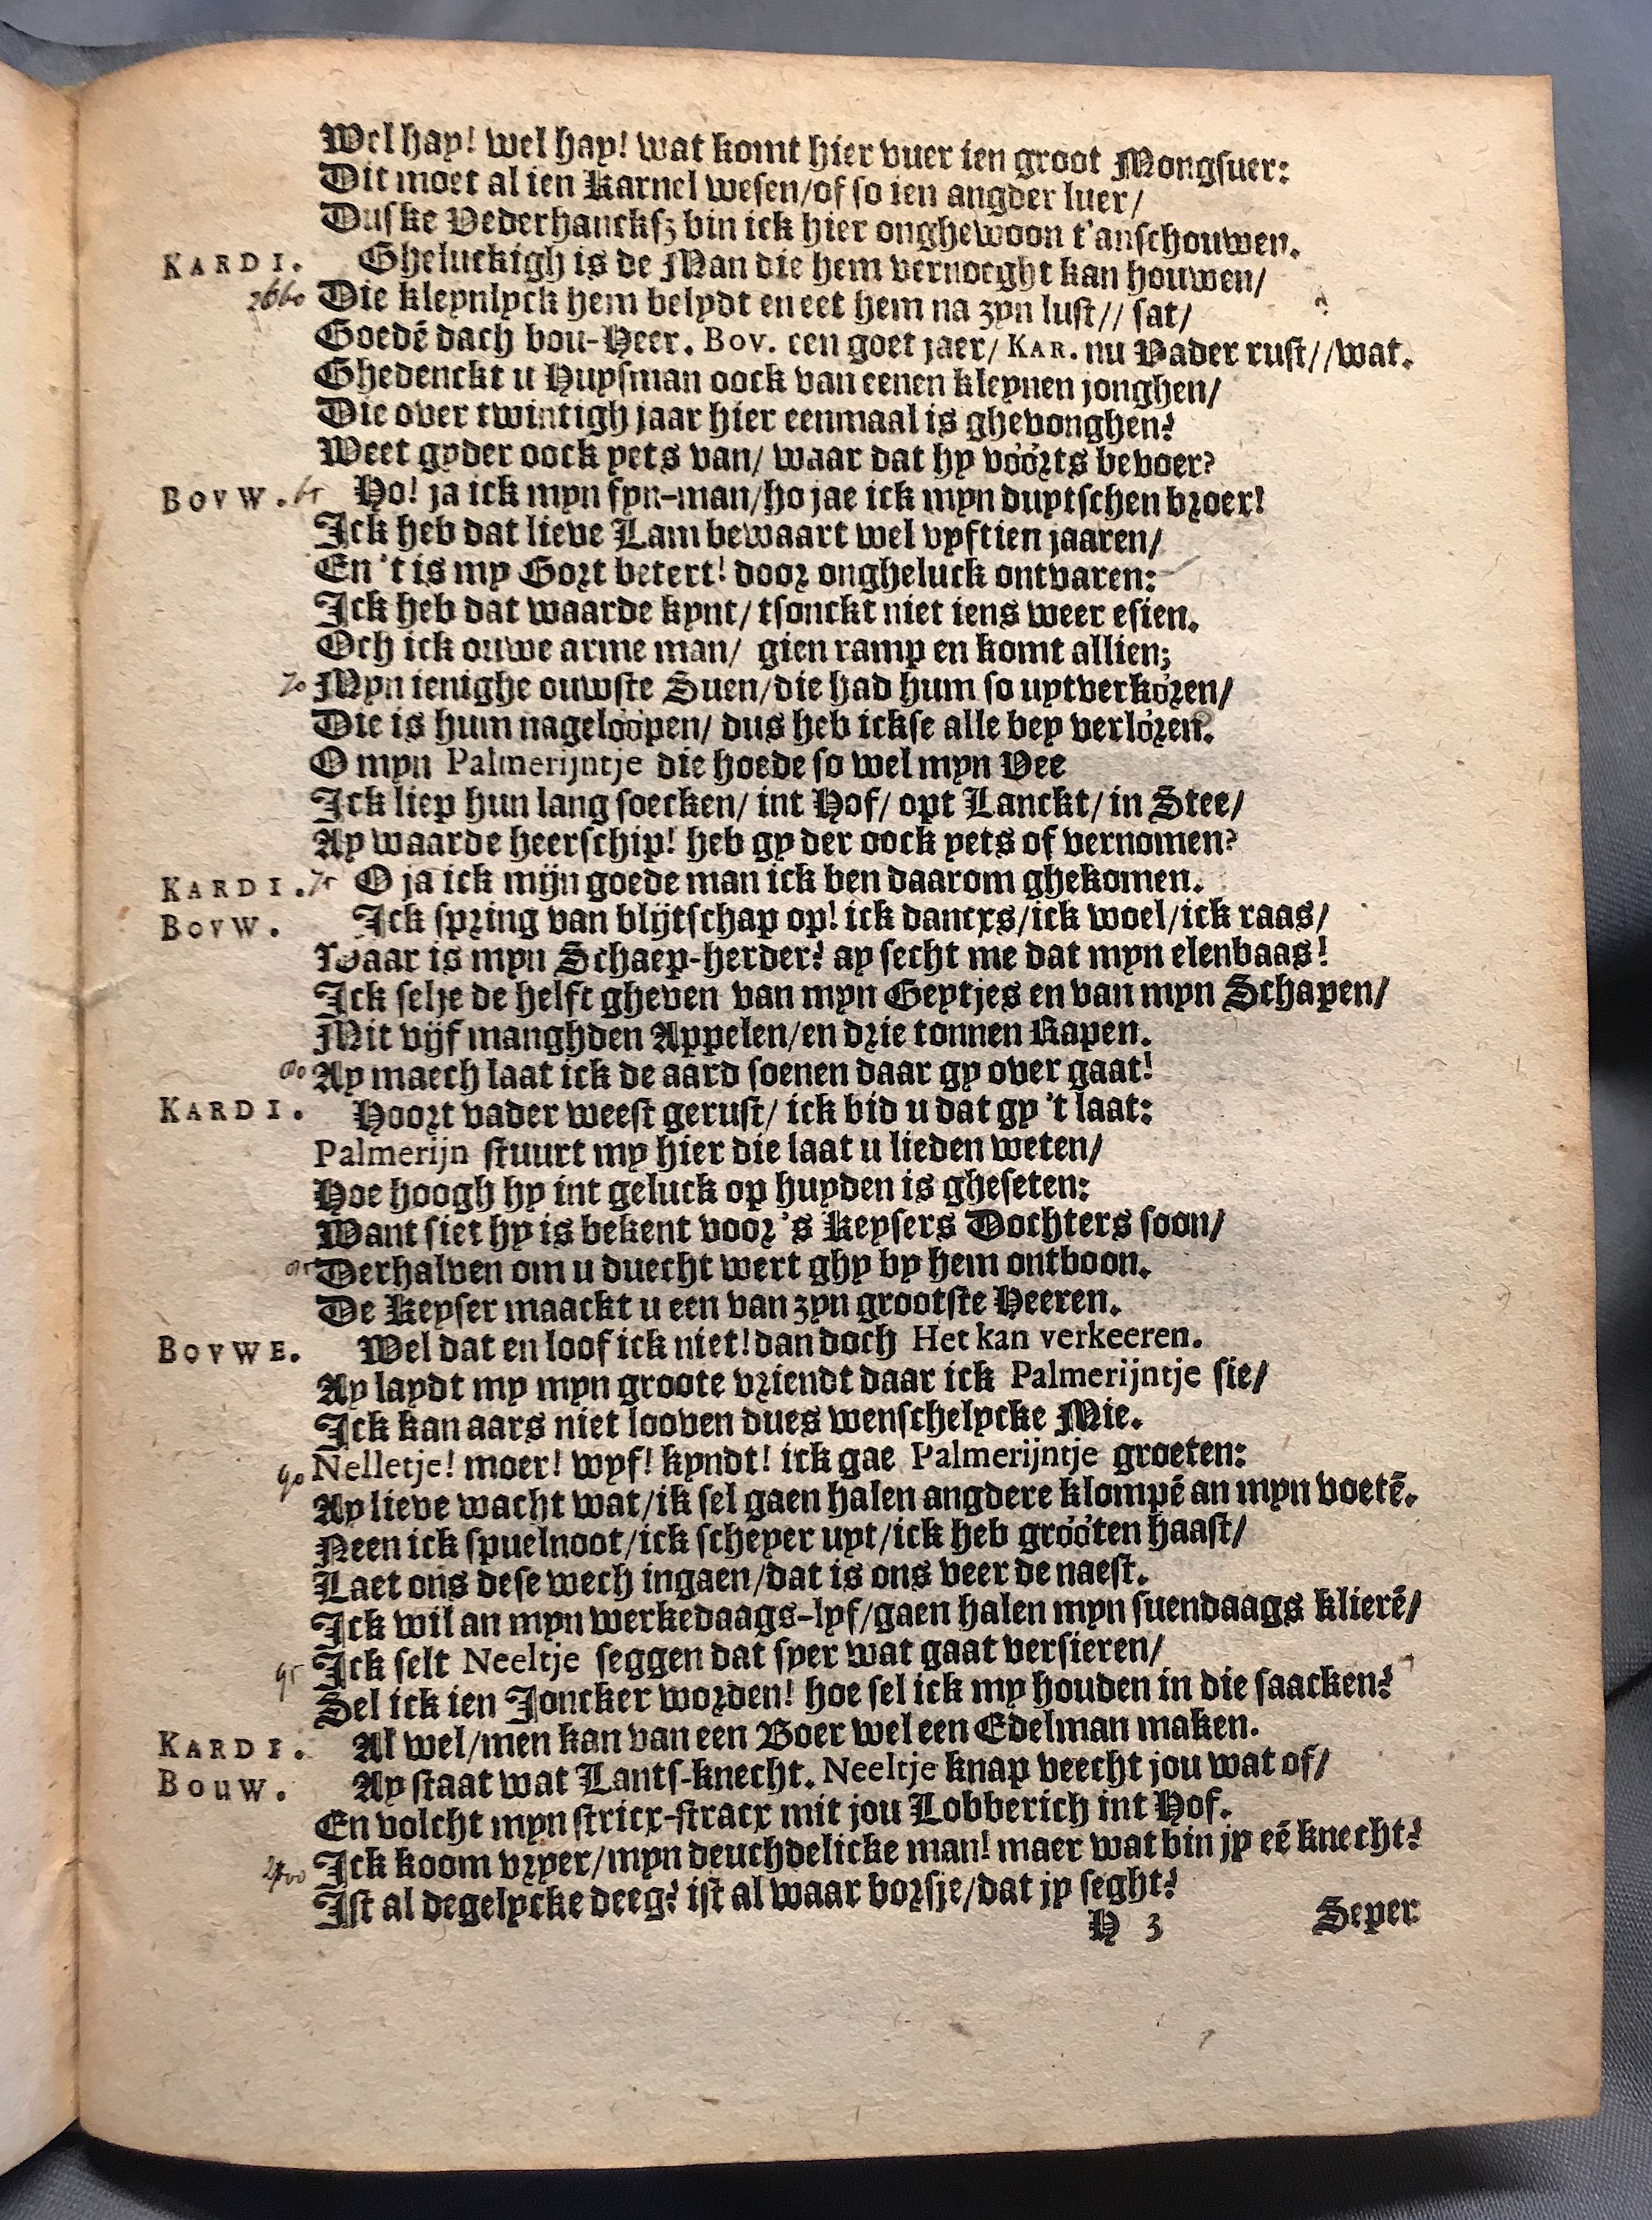 Wel hay! wel hay! wat komt hier vuer ien groot Mongsuer:
Dit moet al ien Karnel wesen/of so ien angder luer/
Dus ke Vederhancksz bin ick hier onghewoon t'anschouwen.
KARDI. Gheluckigh is de Man die hem vernoeght kan houwen/
2660 Die kleynlyck hem belydt en eet hem na zyn lust// sat/
Goedē dach bou-Heer. Bov. een goet jaer/ KAR. nu Vader rust//wat.
Ghedenckt u Huysman oock van eenen kleynen jonghen/
Die over twintigh jaar hier eenmaal is ghevonghen?
Weet gyder oock yets van/ waar dat hy vóórts bevoer?
BOVW. 65 Ho! ja ick myn fyn-man/ho jae ick myn duytschen broer!
Ick heb dat lieve Lam bewaart wel vyftien jaaren/
En 't is my Gort betert! door ongheluck ontvaren:
Ick heb dat waarde kynt/ tsonckt niet iens weer esien.
Och ick ouwe arme man/ gien ramp en komt allien;
70 Myn ienighe ouwste Suen/die had hum so uytverkóren/
Die is hum nagelóópen/ dus heb ickse alle bey verlóren.
O myn Palmerijntje die hoede so wel myn Vee
Ick liep hun lang soecken/ int Hof/ opt Lanckt/ in Stee/
Ay waarde heerschip! heb gy der oock yets of vernomen?
KARDI. 75 O ja ick mijn goede man ick ben daarom ghekomen.
BOVW. Ick spring van blijtschap op! ick dancxs/ick woel/ick raas/
Waar is myn Schaep-herder? ay secht me dat myn elenbaas!
Ick selje de helft gheven van myn Geytjes en van myn Schapen/
Mit vijf manghden Appelen/en drie tonnen Rapen.
80 Ay maech laat ick de aard soenen daar gy over gaat!
KARDI. Hoort vader weest gerust/ ick bid u dat gy 't laat:
Palmerijn stuurt my hier die laat u lieden weten/
Hoe hoogh hy int geluck op huyden is gheseten:
Want siet hy is bekent voor 's Keysers Dochters soon/
85 Derhalven om u duecht wert ghy by hem ontboon.
De Keyser maackt u een van zyn grootste Heeren.
BOVWE. Wel dat en loof ick niet! dan doch Het kan verkeeren.
Ay laydt my myn groote vriendt daar ick Palmerijntje sie/
Ick kan aars niet looven dues wenschelycke Mie.
90 Nelletje! moer! wyf! kyndt! ick gae Palmerijntje groeten:
Ay lieve wacht wat/ik sel gaen halen angdere klompē an myn voetē.
Neen ick spuelnoot/ick scheyer uyt/ick heb gróóten haast/
Laet ons dese wech ingaen/dat is ons veer de naest.
Ick wil an myn werkedaags-lyf/gaen halen myn suendaags klierē/
95 Ick selt Neeltje seggen dat syer wat gaat versieren/
Sel ick ien Joncker worden! hoe sel ick my houden in die saacken?
KARDI. Al wel/men kan van een Boer wel een Edelman maken.
BOUW. Ay staat wat Lants-knecht. Neeltje knap veecht jou wat of/
En volcht myn stricx-stracx mit jou Lobberich int Hof.
2700 Ick koom vryer/myn deuchdelicke man! maer wat bin jy eē knecht?
Ist al degelycke deeg? ist al waar borsje/dat jy seght?
H 3 Seper